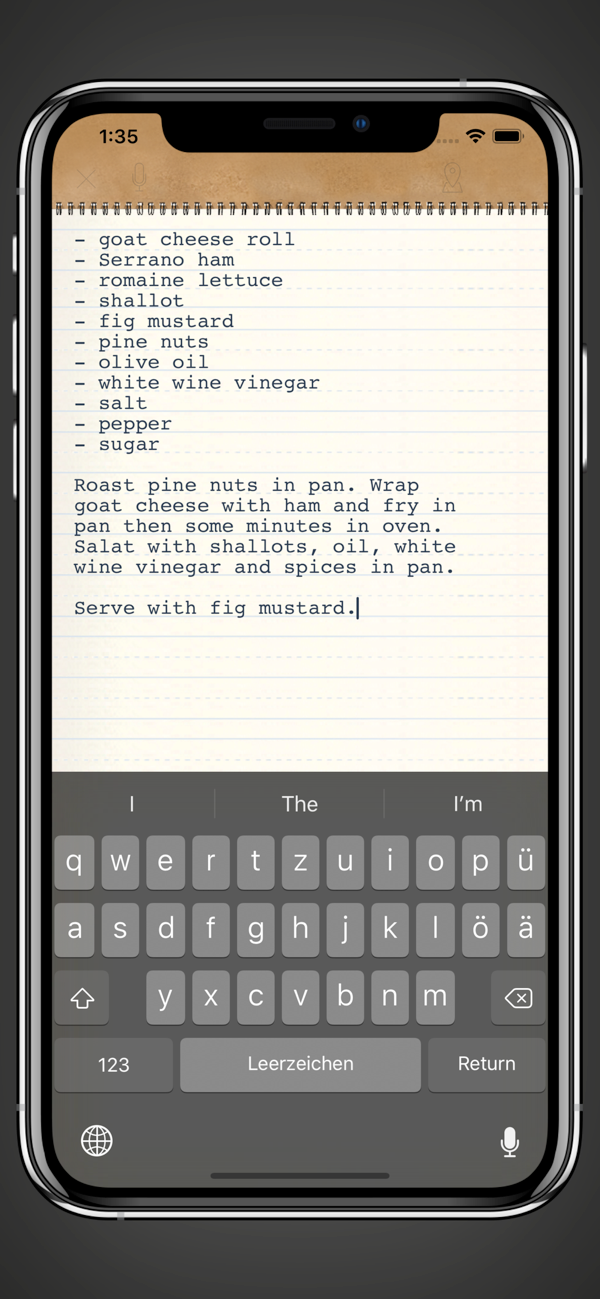 1:35
- goat cheese roll
- Serrano ham
- romaine lettuce
- shallot
- fig mustard
- pine nuts
- olive oil
- white wine vinegar
- salt
- pepper
- sugar
Roast pine nuts in pan. Wrap
goat cheese with ham and fry in
pan then some minutes in oven.
Salat with shallots, oil, white
wine vinegar and spices in pan.
Serve with fig mustard.
I The I'm
q w e r t z u i o p ü
a s d f g h j k l ö ä
y x c v b n m
123 Leerzeichen Return